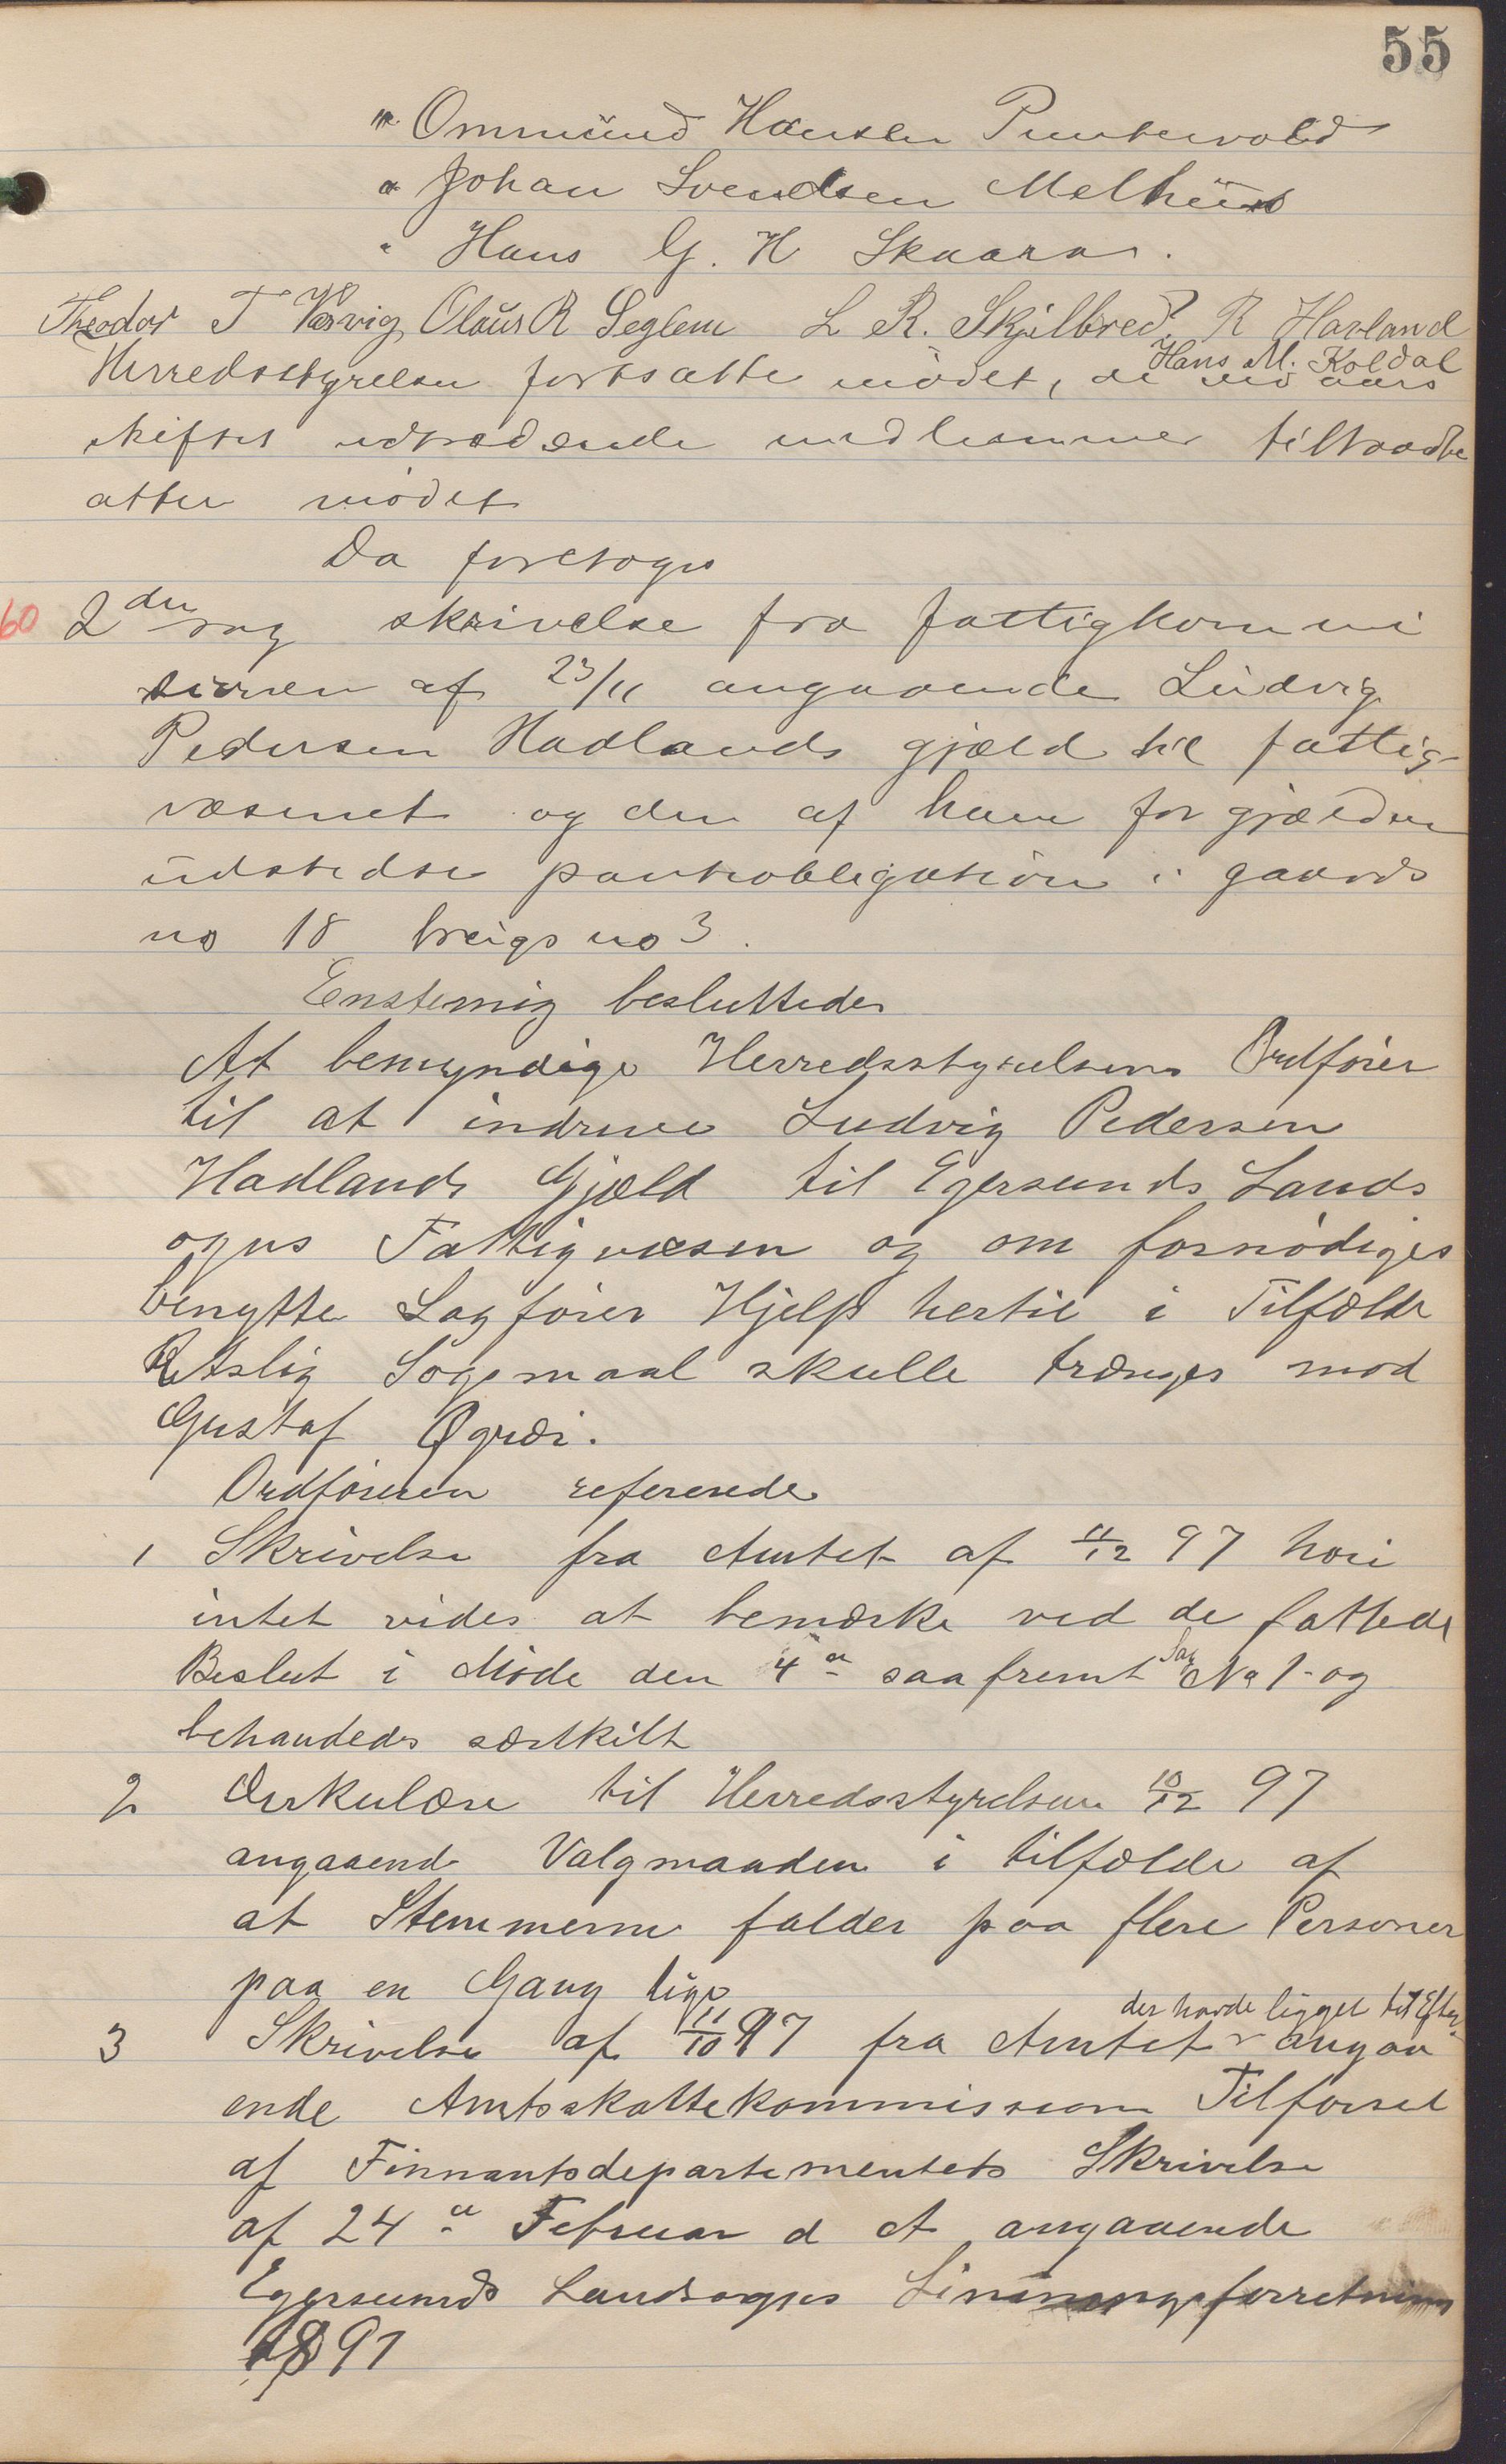 55
" Ommund Hansen Puntervold
" Johan Svendsen Melhuus
" Hans G. H Skaara.
Theodor TVærvig Olaus R Seglem L R. Skjilbred. R Havland
Hans M. Koldal
Herredsstyrelsen fortsatte mödet, de ved aars
skiftet udtrædende medlemmer tiltraadte
atter mödet
Da foretoges
60 2den sag skrivelse fra fattigkommi
sionen af 23/11 angaaende Ludvig
Pedersen Hadlands gjæld til fattig-
væsenet og den af ham for gjælden
udstedte panteobligation i gaards
no 18 brugs no 3.
Enstemig besluttedes
At bemyndige Herredsstyrelsens Ordförer
til at inddrive Ludvig Pedersen
Hadlands Gjæld til Egersunds Lands
ogns Fattigvæsen og om fornödiges
benytte Sagförer Hjelp hertil i Tilfælde
Retslig Sögsmaal skulle trænges mod
Gustaf Øgrei.
Ordföreren refererede
1 Skrivelse fra Amtet af 11/12 97 hvori
intet vides at bemærke ved de fattede
Beslut i Möde den 4de saafremt Sag No 1 og
behandeds særskilt
2 Cirkulære til Herredsstyrelsen 10/12 97
angaaende Valgmaaden i tilfælde af
at Stemmerne falder paa flere Personer
paa en Gang lige
3 Skrivelse af 11/10 97 fra Amtet der havde ligget til Efter- angaa
ende Amtsskattekommissions Tilförsel
af Finnantsdepartementets Skrivelse
af 24de Februar d A angaaende
Egersunds Landsogns Ligningsforretning
1891